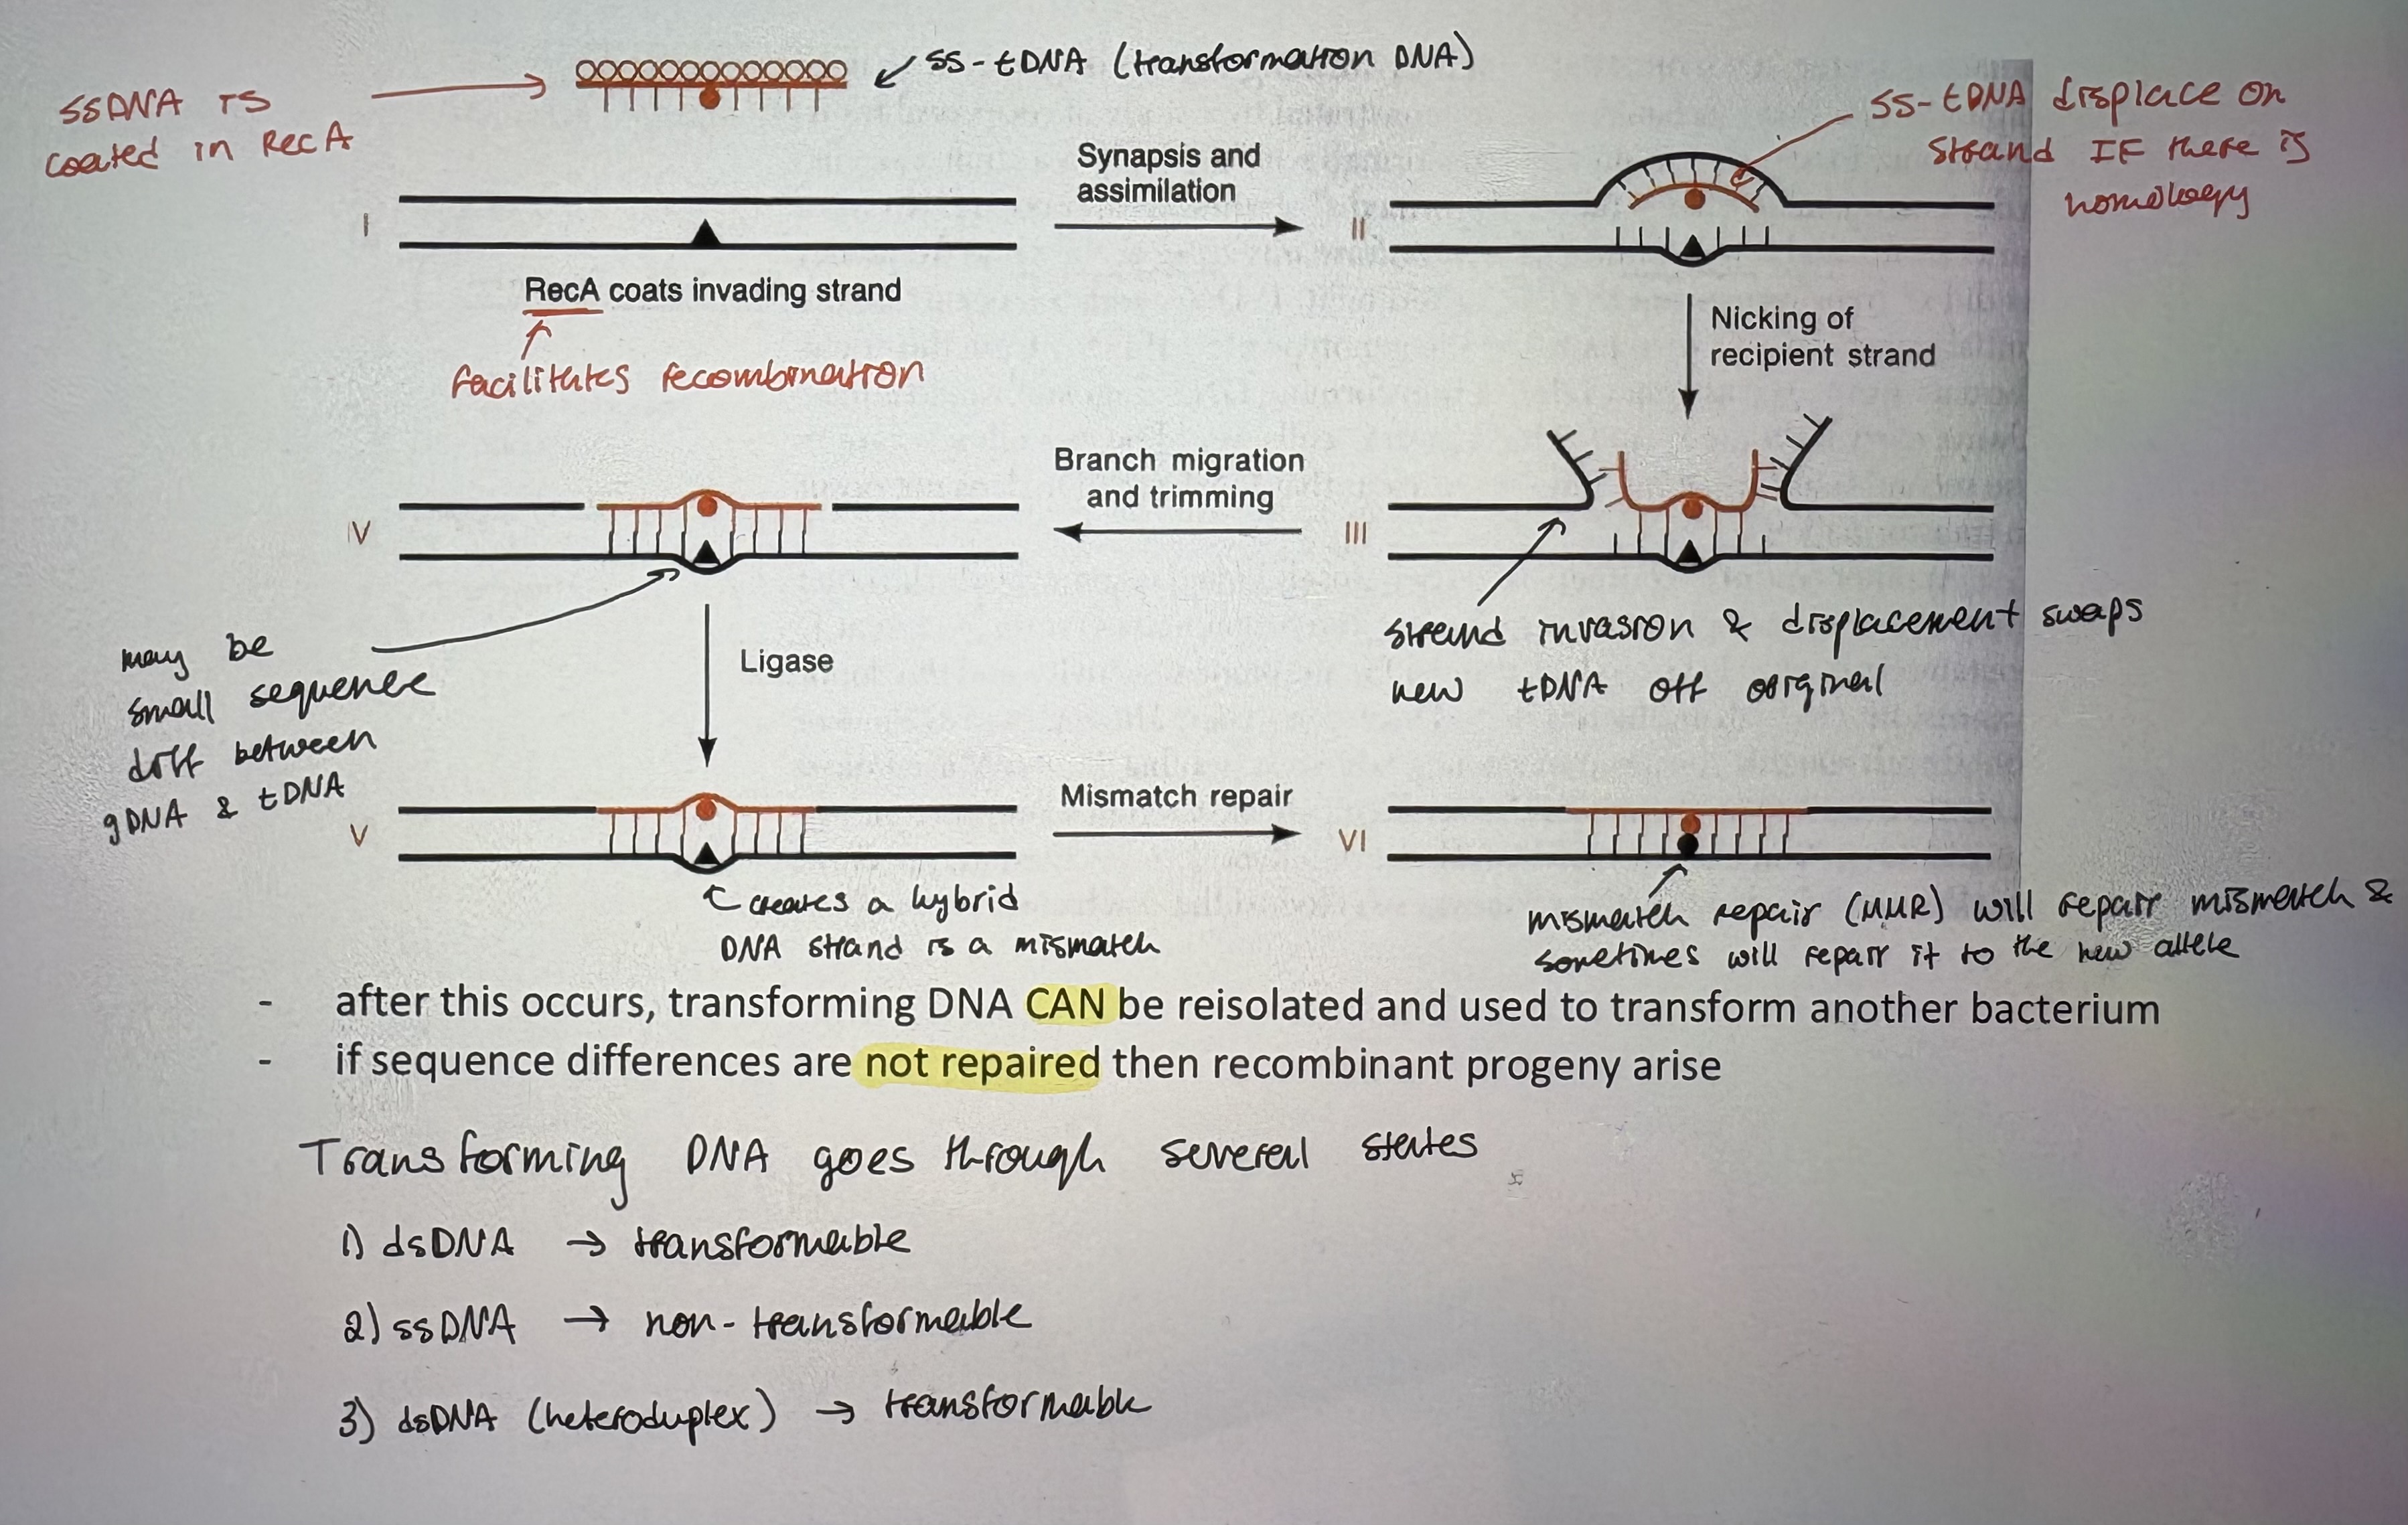 SSDNA IS
coated in RecA
ss-tDNA (transformation DNA)
ss-tDNA displace on
strand IF there is
homology
Synapsis and
assimilation
I
II
RecA coats invading strand
facilitates recombination
Nicking of
recipient strand
Branch migration
and trimming
IV
III
may be
small sequence
diff between
gDNA & tDNA
Ligase
strand invasion & displacement swaps
new tDNA off original
Mismatch repair
V
VI
creates a hybrid
DNA strand is a mismatch
mismatch repair (MMR) will repair mismatch &
sometimes will repair it to the new allele
- after this occurs, transforming DNA CAN be reisolated and used to transform another bacterium
- if sequence differences are not repaired then recombinant progeny arise
Transforming DNA goes through several states
1) dsDNA → transformable
2) ssDNA → non-transformable
3) dsDNA (heteroduplex) → transformable